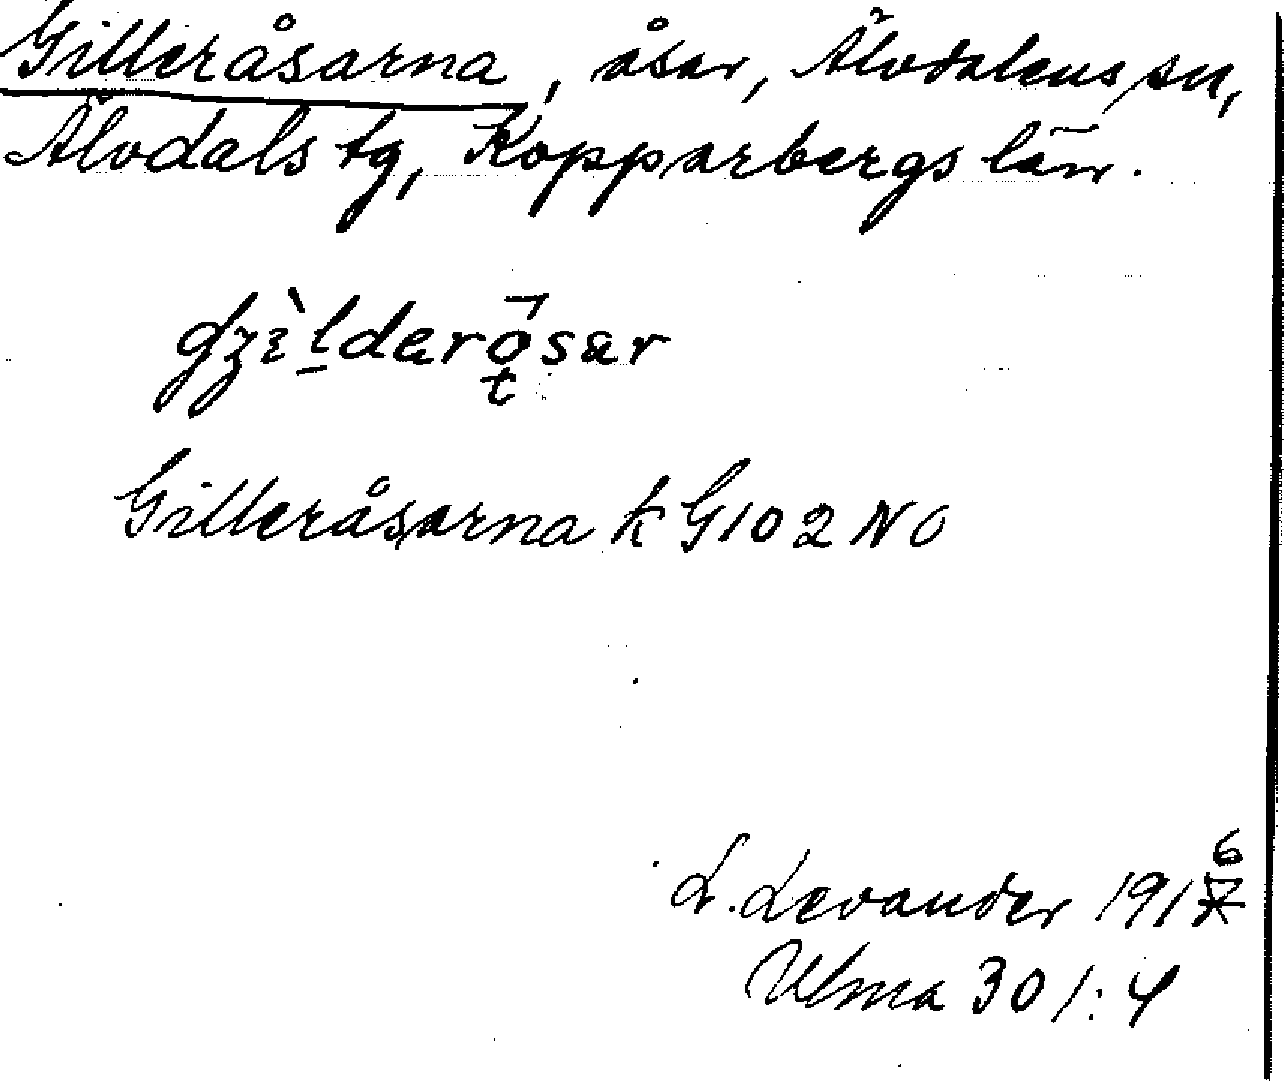 Gilleråsarna, åsar, Älvdalens sn,
Älvdals tg, Kopparbergs län.
Gilleråsarna k G102 NO
L. Levander 1916
Ulma 301:4